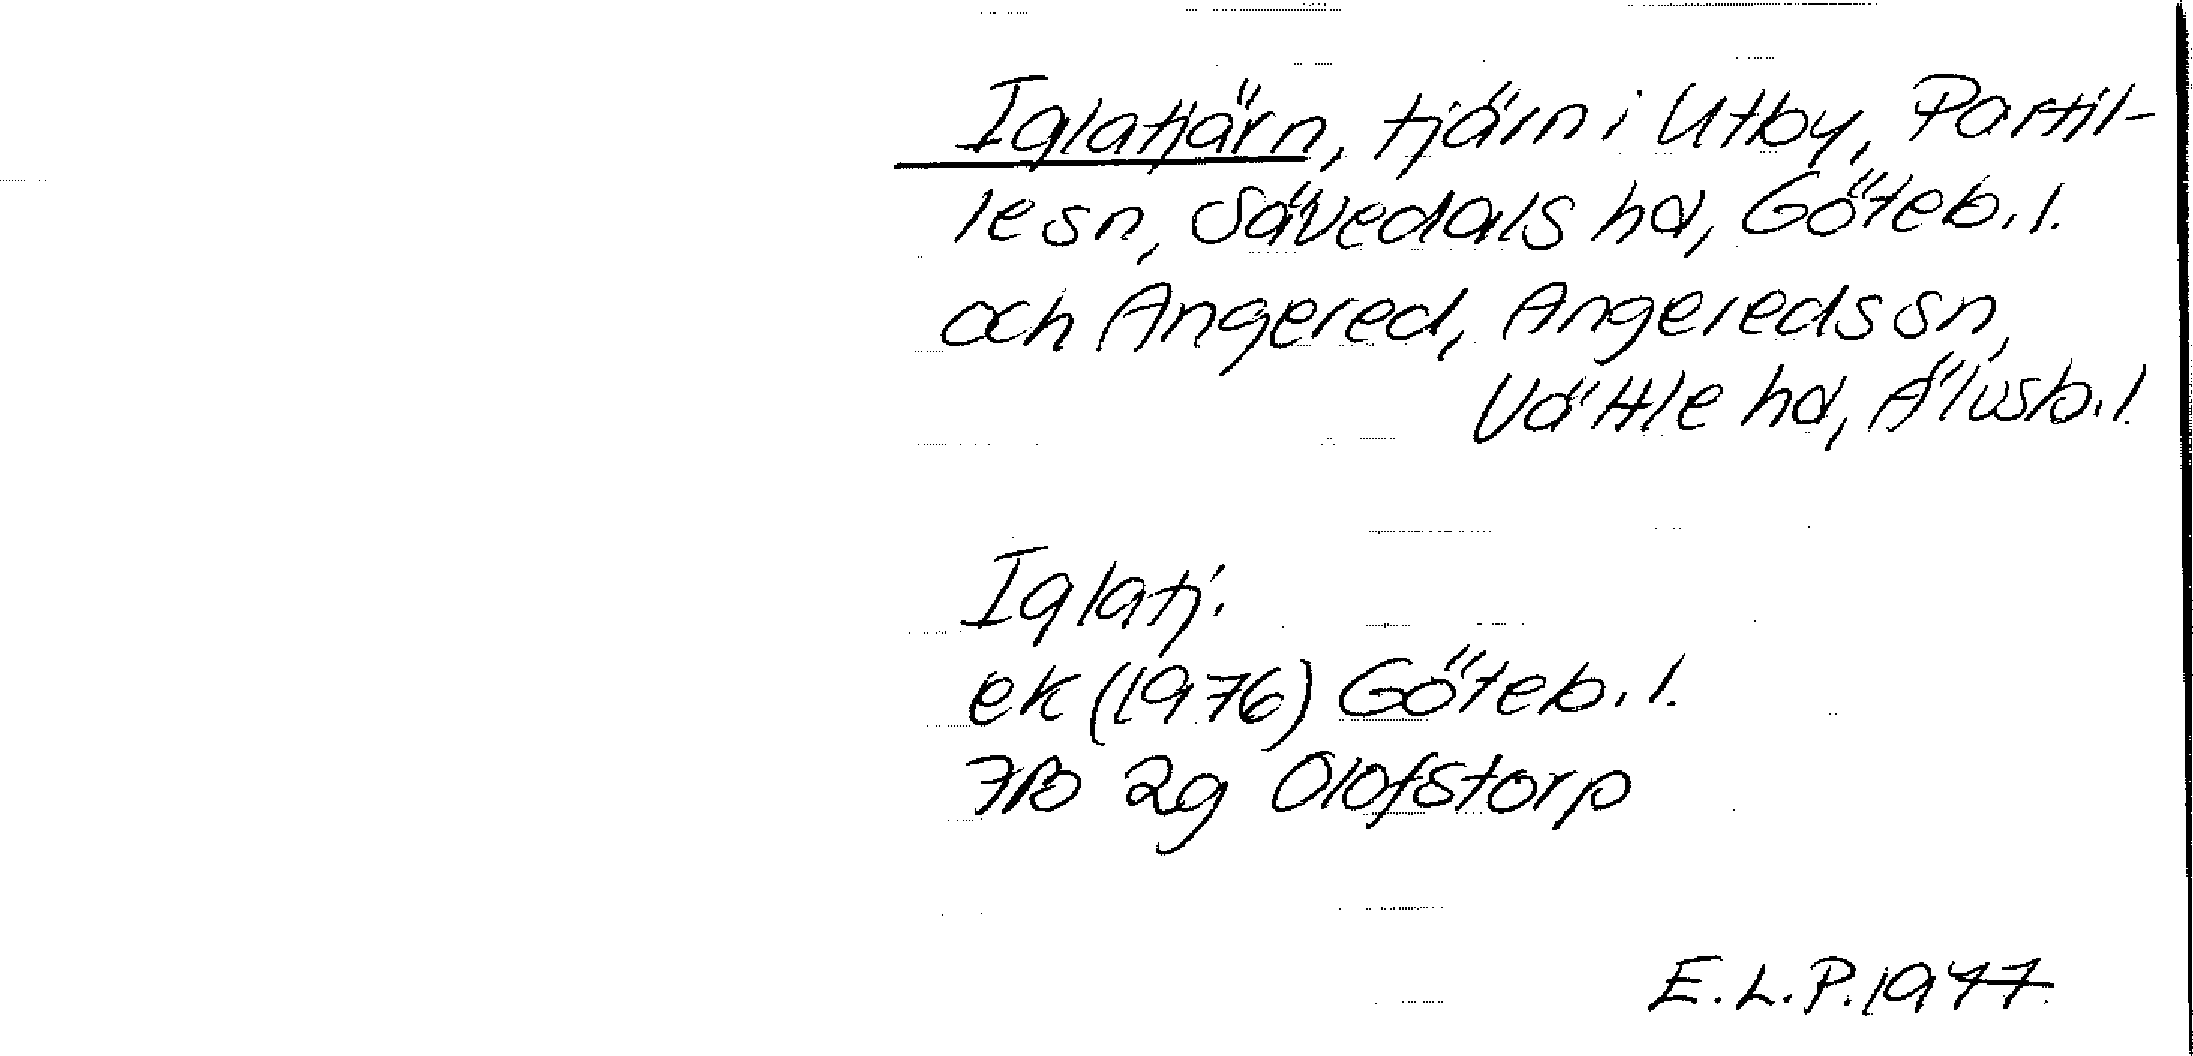 Iglatjärn, tjärn i Utby, Partil-
le sn, Sävedals hd, Göteb.l.
och Angered, Angereds sn,
Vättle hd, Älvsb.l.
Iglatj.
ek (1976) Göteb.l.
7B 2g Olofstorp
E.L.P. 1977